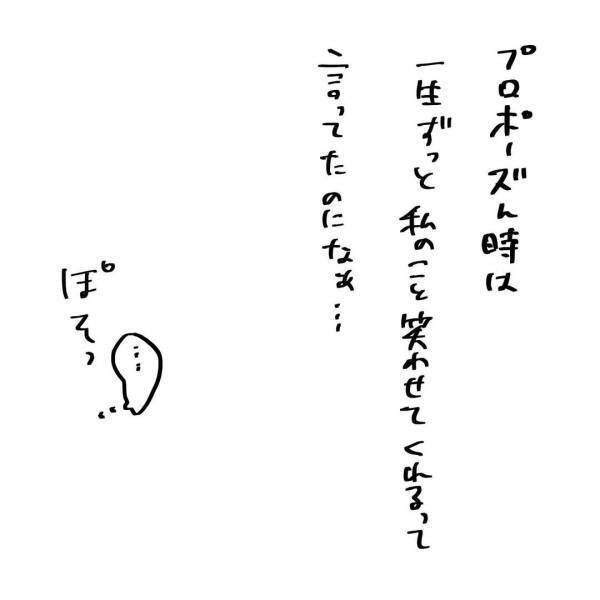 プロポーズん時は
一生ずっと私のこと笑わせてくれるって
言ってたのになぁ…
ぽそっ
…